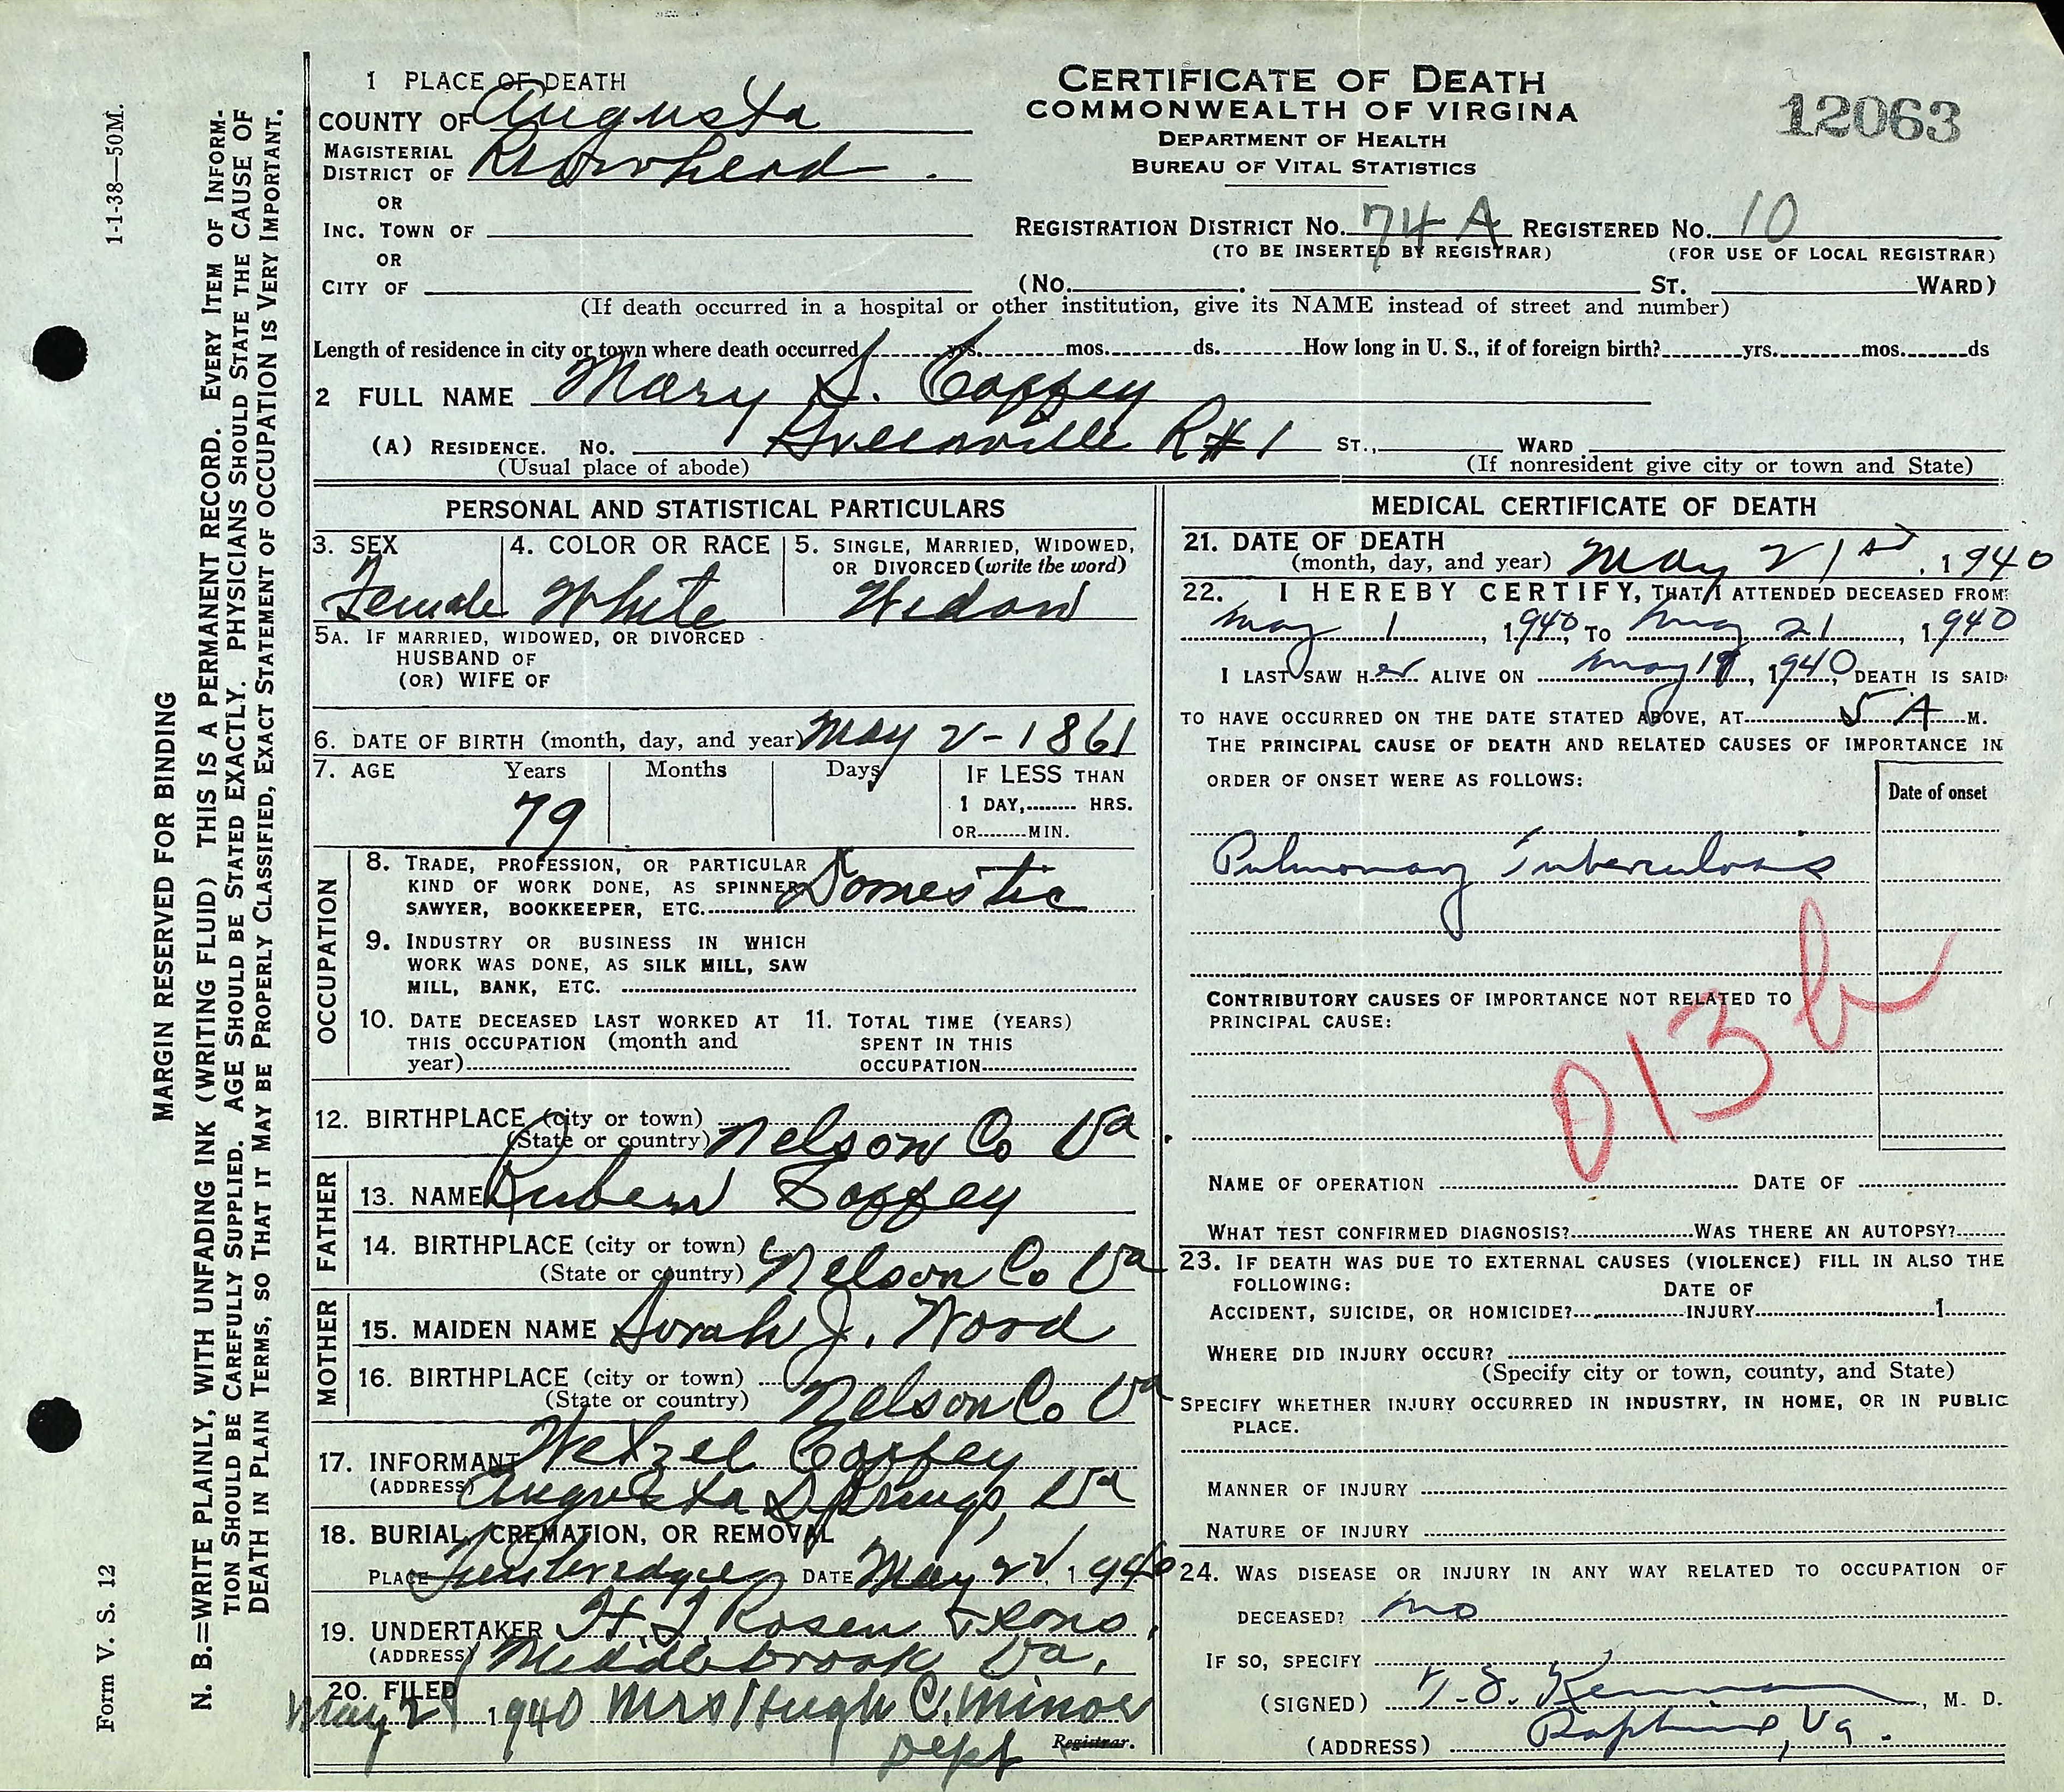 1 PLACE OF DEATH
COUNTY OF Augusta
MAGISTERIAL DISTRICT OF Riverhead
OR
INC. TOWN OF
OR
CITY OF
CERTIFICATE OF DEATH
COMMONWEALTH OF VIRGINA
DEPARTMENT OF HEALTH
BUREAU OF VITAL STATISTICS
12063
REGISTRATION DISTRICT NO. 74 A REGISTERED NO. 10
(TO BE INSERTED BY REGISTRAR) (FOR USE OF LOCAL REGISTRAR)
(No. ST. WARD)
(If death occurred in a hospital or other institution, give its NAME instead of street and number)
Length of residence in city or town where death occurred yrs. mos. ds. How long in U. S., if of foreign birth? yrs. mos. ds
2 FULL NAME Mary S. Coffey
(A) RESIDENCE. NO. Greenville R#1 ST., WARD
(Usual place of abode) (If nonresident give city or town and State)
PERSONAL AND STATISTICAL PARTICULARS
3. SEX 4. COLOR OR RACE 5. SINGLE, MARRIED, WIDOWED,
OR DIVORCED (write the word)
Female White Widow
5A. IF MARRIED, WIDOWED, OR DIVORCED
HUSBAND OF
(OR) WIFE OF
6. DATE OF BIRTH (month, day, and year) May 2-1861
7. AGE Years Months Days IF LESS THAN
1 DAY, HRS.
79 OR MIN.
OCCUPATION
8. TRADE, PROFESSION, OR PARTICULAR
KIND OF WORK DONE, AS SPINNER, Domestic
SAWYER, BOOKKEEPER, ETC.
9. INDUSTRY OR BUSINESS IN WHICH
WORK WAS DONE, AS SILK MILL, SAW
MILL, BANK, ETC.
10. DATE DECEASED LAST WORKED AT 11. TOTAL TIME (YEARS)
THIS OCCUPATION (month and SPENT IN THIS
year) OCCUPATION
12. BIRTHPLACE (city or town)
(State or country) Nelson Co Va.
FATHER
13. NAME Ruben Coffey
14. BIRTHPLACE (city or town)
(State or country) Nelson Co Va
MOTHER
15. MAIDEN NAME Sarah J. Wood
16. BIRTHPLACE (city or town)
(State or country) Nelson Co Va
17. INFORMANT Wetzel Coffey
(ADDRESS) Augusta Springs, Va
18. BURIAL, CREMATION, OR REMOVAL
PLACE DATE May 22, 1940
19. UNDERTAKER H. J. Rosen & Sons.
(ADDRESS) Middlebrook Va.
20. FILED
May 2 1940 Mrs Hugh C. Minor
Dept Registrar.
MEDICAL CERTIFICATE OF DEATH
21. DATE OF DEATH
(month, day, and year) May 21st, 1940
22. I HEREBY CERTIFY, THAT I ATTENDED DECEASED FROM
May 1, 1940, TO May 21, 1940
I LAST SAW HER ALIVE ON May 19, 1940, DEATH IS SAID
TO HAVE OCCURRED ON THE DATE STATED ABOVE, AT 5 A M.
THE PRINCIPAL CAUSE OF DEATH AND RELATED CAUSES OF IMPORTANCE IN
ORDER OF ONSET WERE AS FOLLOWS:
Date of onset
Pulmonary Tuberculosis
CONTRIBUTORY CAUSES OF IMPORTANCE NOT RELATED TO
PRINCIPAL CAUSE:
013 b
NAME OF OPERATION DATE OF
WHAT TEST CONFIRMED DIAGNOSIS? WAS THERE AN AUTOPSY?
23. IF DEATH WAS DUE TO EXTERNAL CAUSES (VIOLENCE) FILL IN ALSO THE
FOLLOWING: DATE OF
ACCIDENT, SUICIDE, OR HOMICIDE? INJURY 1
WHERE DID INJURY OCCUR?
(Specify city or town, county, and State)
SPECIFY WHETHER INJURY OCCURRED IN INDUSTRY, IN HOME, OR IN PUBLIC
PLACE.
MANNER OF INJURY
NATURE OF INJURY
24. WAS DISEASE OR INJURY IN ANY WAY RELATED TO OCCUPATION OF
DECEASED? no
IF SO, SPECIFY
(SIGNED) , M. D.
(ADDRESS) Raphine, Va.
1-1-38—50M.
MARGIN RESERVED FOR BINDING
N. B.=WRITE PLAINLY, WITH UNFADING INK (WRITING FLUID) THIS IS A PERMANENT RECORD. EVERY ITEM OF INFORM-
TION SHOULD BE CAREFULLY SUPPLIED. AGE SHOULD BE STATED EXACTLY. PHYSICIANS SHOULD STATE THE CAUSE OF
DEATH IN PLAIN TERMS, SO THAT IT MAY BE PROPERLY CLASSIFIED, EXACT STATEMENT OF OCCUPATION IS VERY IMPORTANT.
Form V. S. 12